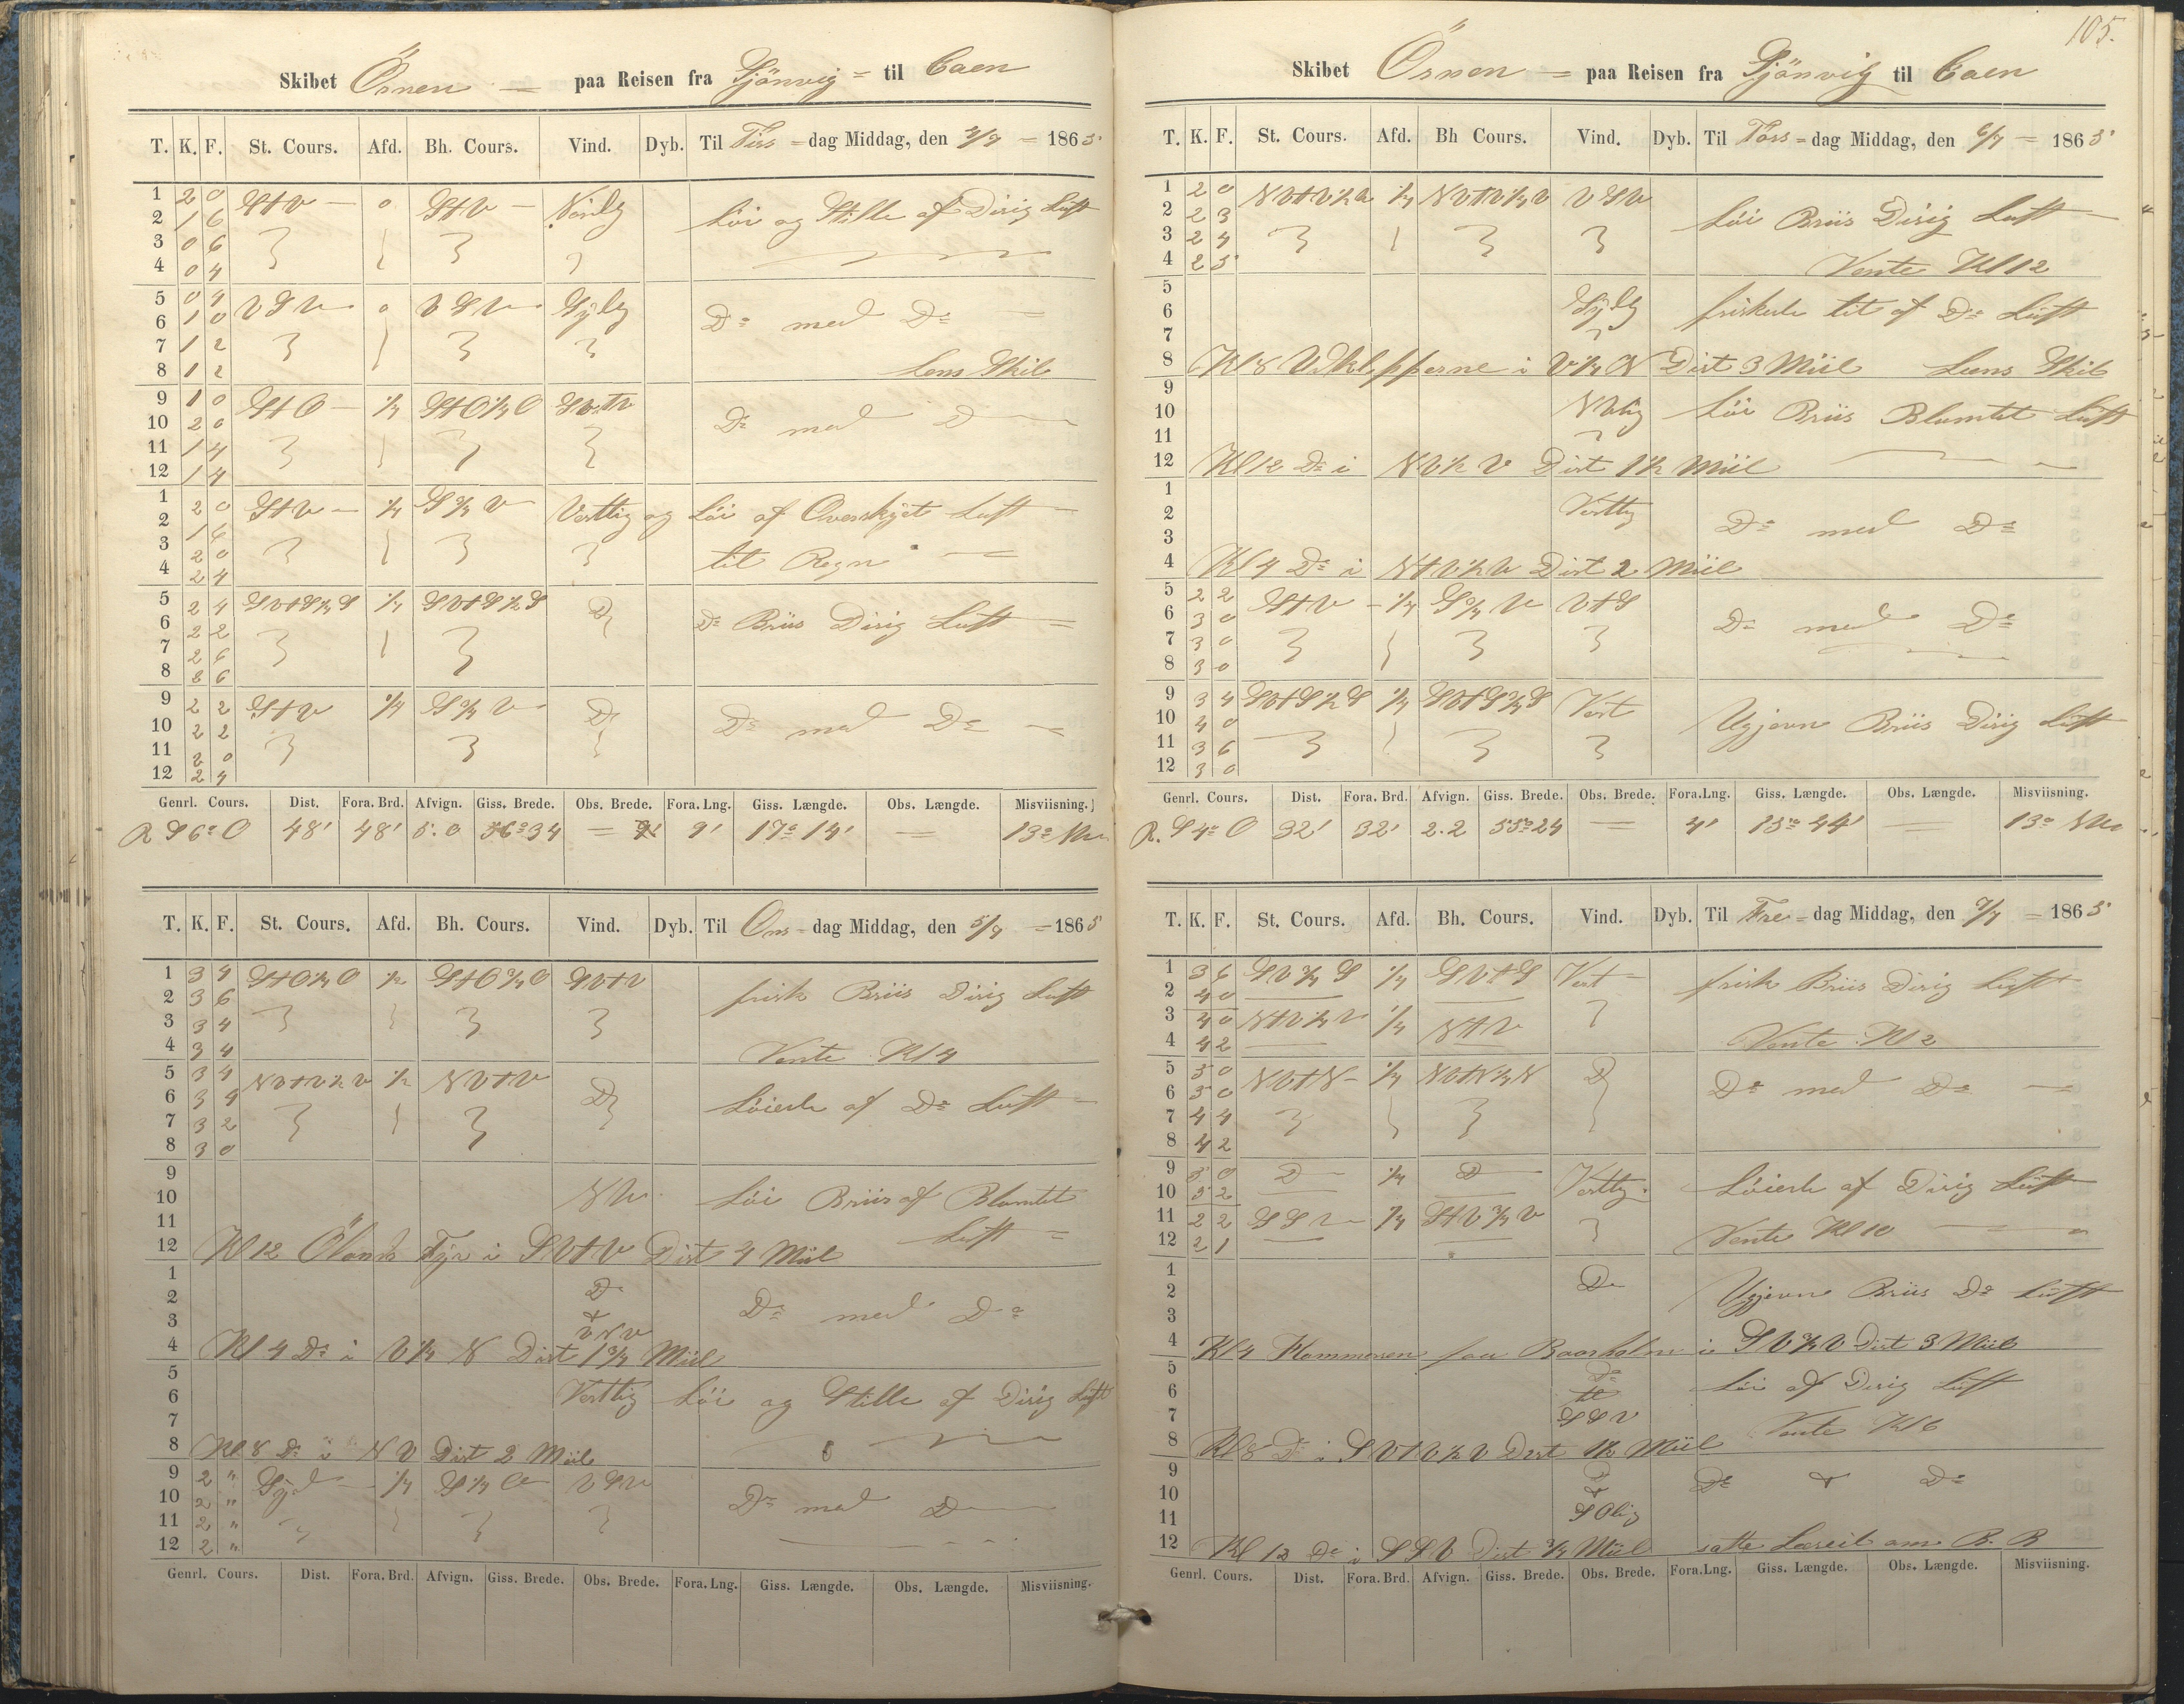 Skibet Örnen = paa Reisen fra Sjönvig = til Caen
T. K. F. St. Cours. Afd. Bh. Cours. Vind. Dyb. Til Tirs = dag Middag, den 4/7 = 1865
1 2 0 StV — 0 StV — Nördlg Löi og Stille af Disig Luft
2 1 6
3 0 6
4 0 4
5 0 4 VSV 0 VSV Sÿdlg Do med Do
6 1 0
7 1 2
8 1 2 Lens Skib
9 1 0 StO — 1/4 StO1/4O SVtV Do med D
10 2 0
11 1 4
12 1 4
1 2 0 StV — 1/4 S3/4V Vestlig og Löi af Overskÿet Luft
2 1 6
3 2 0 til Regn
4 2 4
5 2 4 SVtS1/4S 1/4 SVtS1/2S D Do Briis Disig Luft
6 2 2
7 2 6
8 2 6
9 2 2 StV 1/4 S3/4V D Do med Do
10 2 2
11 2 0
12 2 4
Genrl. Cours. Dist. Fora. Brd. Afvign. Giss. Brede. Obs. Brede. Fora. Lng. Giss. Længde. Obs. Længde. Misviisning.
R S6°O 48' 48' 5.0 56°34 = 9' 17°14' — 13° NV
T. K. F. St. Cours. Afd. Bh. Cours. Vind. Dyb. Til Ons = dag Middag, den 5/7 = 1865
1 3 4 StO1/4O 1/2 StO3/4O SVtV frisk Briis Disig Luft
2 3 6
3 3 4
4 3 4 Vente Kl 4
5 3 4 NVtV1/2V 1/2 NVtV D Löiede af Do Luft
6 3 4
7 3 2
8 3 0
9
10 NV. Löi Briis af Blamlet
11 Luft
12 Kl 12 Ölands Fÿr i SVtV Dist 4 Miil
1 D
2 & Do med Do
3 VNV
4 Kl 4 Do i V1/4N Dist 1 3/4 Miil
5
6 Vestlig Löi og Stille af Disig Luft
7
8 Kl 8 Do i NV Dist 2 Miil
9 2 " Sÿd — 1/4 S1/4V VSV Do med D
10 2 "
11 2 "
12 2 "
Genrl. Cours. Dist. Fora. Brd. Afvign. Giss. Brede. Obs. Brede. Fora. Lng. Giss. Længde. Obs. Længde. Misviisning.
105.
Skibet Örnen = paa Reisen fra Sjönvig til Caen
T. K. F. St. Cours. Afd. Bh Cours. Vind. Dyb. Til Tors = dag Middag, den 6/7 = 1865
1 2 0 NVtV1/2V 1/4 NVtV1/4V VSV
2 2 3 Löi Briis Disig Luft
3 2 4
4 2 5 Vente Kl 12
5
6 Sÿdlg friskede lit af Do Luft
7
8 Kl 8 Utklipperne i V1/4N Dist 3 Miil Lens Skib
9
10 NVlig Löi Briis Blamlet Luft
11
12 Kl 12 Do i NV1/2V Dist 1 1/2 Miil
1
2 Vestlig Do med Do
3
4 Kl 4 Do i NtV1/2V Dist 2 Miil
5 2 2 StV — 1/4 S3/4V VtS
6 3 0 Do med Do
7 3 0
8 3 0
9 3 4 SVtS1/2S 1/4 SVtS3/4S Vest
10 4 0 Ugjevn Briis Disig Luft
11 3 6
12 3 0
Genrl. Cours. Dist. Fora. Brd. Afvign. Giss. Brede. Obs. Brede. Fora. Lng. Giss. Længde. Obs. Længde. Misviisning.
R. S4°O 32' 32' 2.2 55°24 — 4' 13°44' — 13° NV
T. K. F. St. Cours. Afd. Bh. Cours. Vind. Dyb. Til Fre = dag Middag, den 7/7 = 1865
1 3 6 SV3/4S 1/4 SVtS Vest frisk Briis Disig Luft
2 4 0
3 4 0 NtV1/4V 1/4 NtV
4 4 2 Vente Kl 2
5 5 0 NVtN — 1/4 NVtN1/4N D Do med Do
6 5 0
7 4 4
8 4 2
9 5 0 D 1/4 D Vestlg Löiede af Disig Luft
10 5 2
11 2 2 SSV 1/4 StV3/4V Vente Kl 10
12 2 1
1 D
2 Ugjevn Briis Do Luft
3
4 Kl 4 Hammeren paa Boonholm i SV3/4V Dist 3 Miil
5 Do
6 til Löi af Disig Luft
7 SSV Vente Kl 6
8 Kl 8 Do i SVtV1/2V Dist 1 1/2 Miil
9 D Do & Do
10 &
11 SOlig
12 Kl 12 Do i SSV Dist 3/4 Miil satte Læseil om B. B
Genrl. Cours. Dist. Fora. Brd. Afvign. Giss. Brede. Obs. Brede. Fora. Lng. Giss. Længde. Obs. Længde. Misviisning.